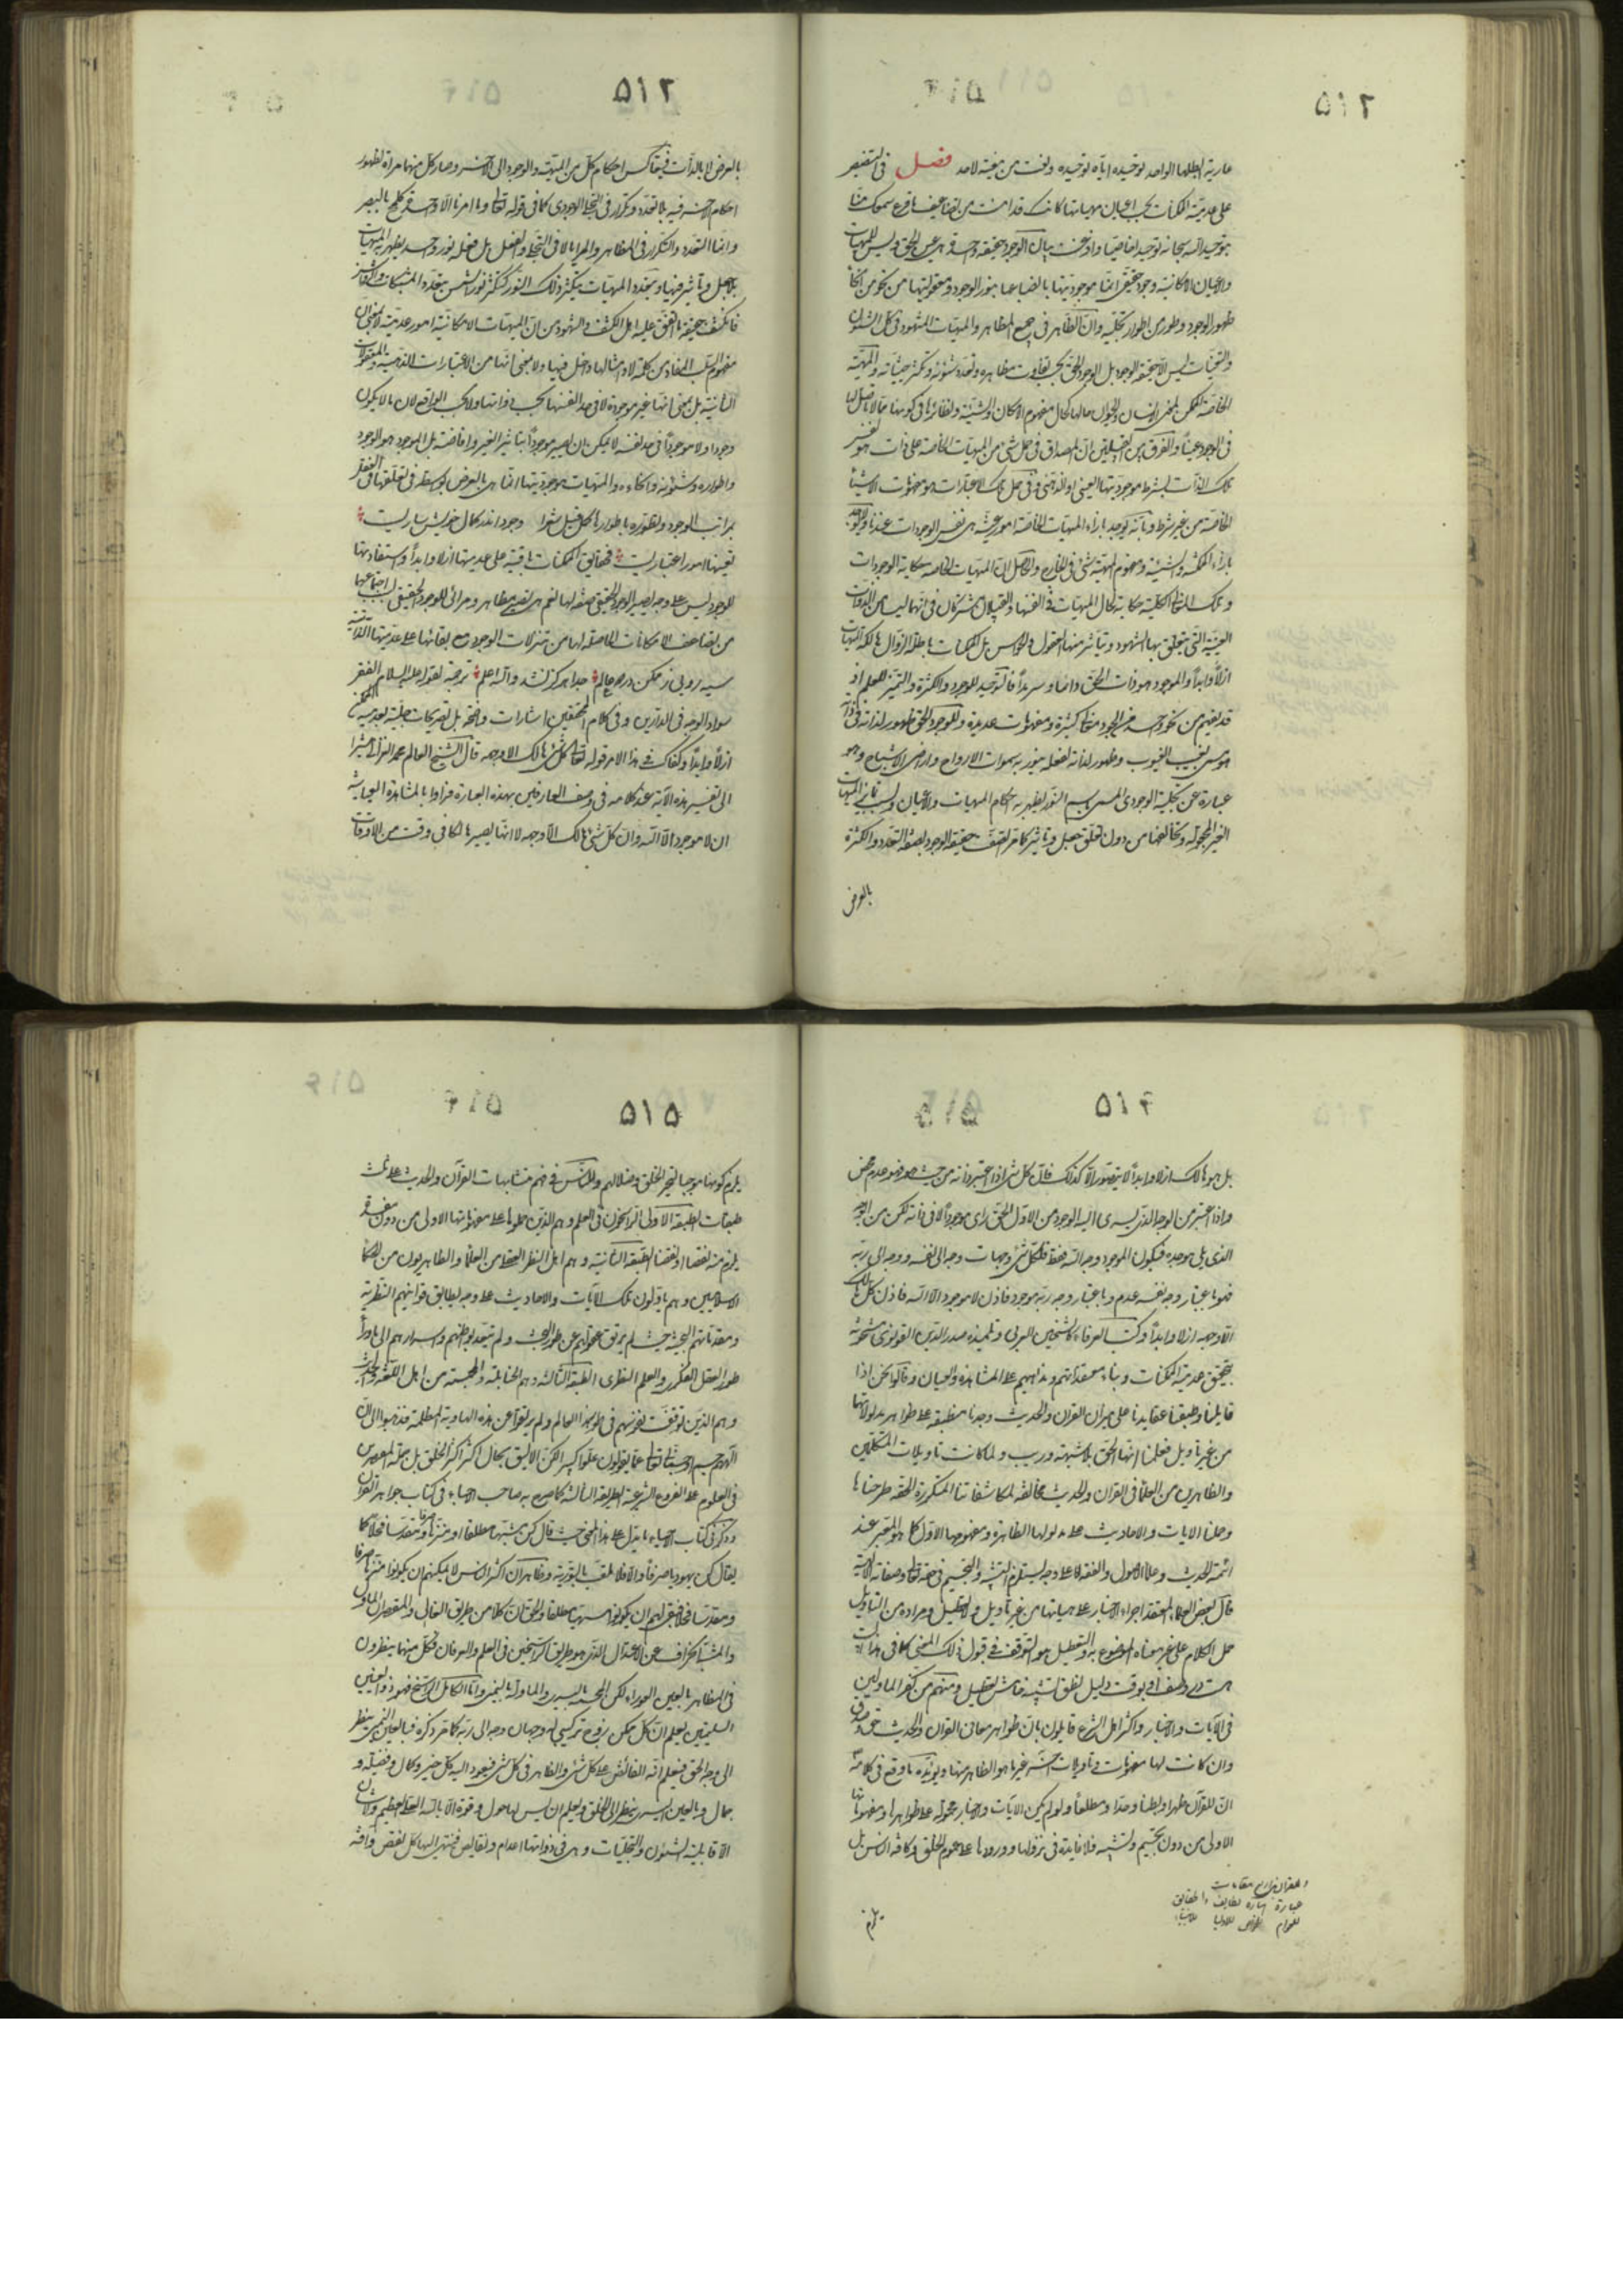 ۵۱۲
عارية اطلها الواحد توحيده اياه توحيده ونعت من ينعته لاحد فصل في التنصيص
على عدمية الممكنات بحسب اعيان مهياتها كانك قد آمنت من تضاعيف ما قرع سمعك منا
بتوحيد الله سبحانه توحيدا خاصيا واذعنت بان الوجود حقيقة واحدة هي عين الحق وليس للمهيات
والاعيان الامكانية وجود حقيقي انما موجوديتها بانصباغها بنور الوجود ومعقوليتها من نحو من انحاء
ظهور الوجود وطور من اطوار تجليه وان الظاهر في جميع المظاهر والمهيات المشهود في كل الشئون
والتعينات ليس الا حقيقة الوجود بل الوجود الحق بحسب تفاوت مظاهره وتعدد شئونه وتكثر حيثياته والمهية
الخاصة الممكنة كمعنى الانسان والحيوان حالها كحال مفهوم الامكان والشيئية ونظائرها في كونها مما لا تاصل لها
في الوجود عينا والفرق بين القبيلتين ان المصداق في حمل شيء من المهيات الخاصة على ذات هو نفس
تلك الذات بشرط موجوديتها العيني او الذهني وفي حمل تلك الاعتبارات هو مفهومات الاشياء
الخاصة من غير شرط وبانه يوجد بازاء المهيات الخاصة امور عينية هي نفس الوجودات عندنا ولا يوجد
بازاء الممكنية والشيئية ومفهوم المهية شيء في الخارج والحاصل ان المهيات الخاصة حكاية للوجودات
وتلك المعاني الكلية حكاية لحال المهيات في انفسها والقبيلان مشتركان في انهما ليسا من الذوات
العينية التي يتعلق بها الشهود ويتاثر منها العقول والحواس بل الممكنات باطلة الذوات هالكة المهيات
ازلا وابدا والموجود هو ذات الحق دائما وسرمدا فالتوحيد للوجود والكثرة والتميز للعلم اذ
قد يفهم من نحو واحد من الوجود معان كثيرة ومفهومات عديدة وللوجود الحق ظهور لذاته في ذاته
هو سمي بغيب الغيوب وظهور لذاته لفعله ينور به سموات الارواح واراضي الاشباح وهو
عبارة عن تجليه الوجودي المسمى باسم النور يظهر به احكام المهيات والاعيان وبسبب تمايز المهيات
الغير المجعولة وتخالفها من دون تعلق جعل وتاثير كما مر اتصفت حقيقة الوجود بصفة التعدد والكثرة
بالعرض
۵۱۳
بالعرض لا بالذات فيتعاكس احكام كل من المهية والوجود الى الاخر وصار كل منهما مرآة لظهور
احكام الاخر فيه بلا تعدد وتكرر في التجلي الوجودي كما في قوله تعالى وما امرنا الا واحدة كلمح بالبصر
وانما التعدد والتكرر في المظاهر والمرايا لا في التجلي والفعل بل فعله نور واحد يظهر به المهيات
بلا جعل وتاثير فيها وبتعدد المهيات يتكثر ذلك النور كتكثر نور الشمس بتعدد المشبكات والرواشن
فانكشف حقيقة ما اتفق عليه اهل الكشف والشهود من ان المهيات الامكانية امور عدمية لا بمعنى ان
مفهوم السلب المفاد من كلمة لا وامثالها داخل فيها ولا بمعنى انها من الاعتبارات الذهنية والمعقولات
الثانية بل بمعنى انها غير موجودة لا في حد انفسها بحسب ذواتها ولا بحسب الواقع لان ما لا يكون
وجودا ولا موجودا في حد نفسه لا يمكن ان يصير موجودا بتاثير الغير وافاضته بل الموجود هو الوجود
واطواره وشئونه وانحاءه والمهيات موجوديتها انما هي بالعرض بواسطة تعلقها في العقل
بمراتب الوجود وتطوره باطوارها كما قيل شعرا وجود اندر كمال خويش ساريست
تعينها امور اعتباريست فحقايق الممكنات باقية على عدميتها ازلا وابدا واستفادتها
للوجود ليس على وجه يصير الوجود الحقيقي صفة لها نعم هي تصير مظاهر ومرائي للوجود الحقيقي بسبب اجتماعها
من تضاعيف الامكانات الحاصلة لها من تنزلات الوجود مع بقائها على عدميتها الذاتية
سيه رويي ز ممكن در دو عالم جدا هرگز نشد والله اعلم ترجمة لقوله عليه السلام الفقر
سواد الوجه في الدارين وفي كلام المحققين اشارات واضحة بل تصريحات جلية بعدمية الممكنات
ازلا وابدا وكفاك في هذا الامر قوله تعالى كل شيء هالك الا وجهه قال الشيخ العالم محمد الغزالي مشيرا
الى تفسير هذه الآية عند كلامه في وصف العارفين بهذه العبارة فراوا بالمشاهدة العيانية
ان لا موجود الا الله وان كل شيء هالك الا وجهه لا انه يصير هالكا في وقت من الاوقات
۵۱۴
بل هو هالك ازلا وابدا لا يتصور الا كذلك فان كل شيء اذا اعتبر ذاته من حيث هو فهو عدم محض
واذا اعتبر من الوجه الذي يسري اليه الوجود من الاول الحق راى موجودا لا في ذاته لكن من الوجه
الذي يلي موجده فيكون الموجود وجه الله فقط فلكل شيء وجهان وجه الى نفسه ووجه الى ربه
فهو باعتبار وجه نفسه عدم وباعتبار وجه ربه موجود فاذن لا موجود الا الله فاذن كل شيء هالك
الا وجهه ازلا وابدا وكتب العرفاء كالشيخين العربي وتلميذه صدر الدين القونوي مشحونة
بتحقيق عدمية الممكنات وبناء معتقداتهم ومذاهبهم على المشاهدة والعيان وقالوا نحن اذا
قابلنا وطبقنا عقايدنا على ميزان القران والحديث وجدناها منطبقة على ظواهر مدلولاتهما
من غير تاويل فعلمنا انها الحق بلا شبهة وريب ولما كانت تاويلات المتكلمين
والظاهريين من العلماء في القران والحديث مخالفة لمكاشفاتنا المتكررة الحقة طرحناها
وحملنا الايات والاحاديث على مدلولها الظاهرة ومفهومها الاول كما هو المعتبر عند
ائمة الحديث وعلماء الاصول والفقه لا على وجه يستلزم التشبيه والتجسيم في حقه تعالى وصفاته الالهية
قال بعض العلماء المعتقد اجراء الاخبار على هيئاتها من غير تاويل ولا تعطيل ومراده من التاويل
حمل الكلام على غير معناه الموضوع له والتعطيل هو التوقف في قبول ذلك المعنى كما في هذا البيت
هست در وصف او بوقت دليل نطق تشبيه وخامشي تعطيل ومنهم من كفر الماولين
في الآيات والاخبار واكثر اهل الشرع قايلون بان ظواهر معاني القران والحديث حق وصدق
وان كانت لها مفهومات وتاويلات اخر غير ما هو الظاهر منها ويؤيده ما وقع في كلامه
ان للقرآن ظهرا وبطنا وحدا ومطلعا ولو لم يكن الآيات والاخبار محمولة على ظواهرها ومفهوماتها
الاولى من دون تجسيم وتشبيه فلا فايدة في نزولها وورودها على عموم الخلق وكافة الناس بل
عبارة اشارة لطايف والحقايق
للعوام للخواص للاوليا للانبياء
يلزم
۵۱۵
يلزم كونها موجبا لتحير الخلق وضلالهم والناس في فهم متشابهات القرآن والحديث على ثلث
طبقات الطبقة الاولى الراسخون في العلم وهم الذين حملوها على مفهوماتها الاولى من دون مفسدة
يلزم منه نقصا او نقضا الطبقة الثانية وهم اهل النظر العقلي من العلماء والظاهريون من الحكماء
الاسلاميين وهم ياولون تلك الآيات والاحاديث على وجه يطابق قوانينهم النظرية
ومقدماتهم البحثية حيث لم يرتق عقولهم عن طور البحث ولم يتعد بواطنهم واسرارهم الى ماوراء
طور العقل الفكري والعلم النظري الطبقة الثالثة وهم الحنابلة والمجسمة من اهل اللغة والحديث
وهم الذين توقفت نفوسهم في طور هذا العالم ولم يرتقوا عن هذه الهاوية المظلمة فذهبوا الى ان
الههم جسم او جسماني تعالى عما يقولون علوا كبيرا لكن الاليق بحال اكثر الخلق بل جملة المقتصرين
في العلوم على الفروع الشرعية الطريقة الثالثة كما صرح به صاحب الاحياء في كتاب جواهر القرآن
وذكر في كتاب الاحياء ما يدل على هذا المعنى حيث قال كن مشبها مطلقا او منزها صرفا ومقدسا فحلا كما
يقال كن يهوديا صرفا والا فلا تلعب بالتورية وظاهر ان اكثر الناس لا يمكنهم ان يكونوا منزها صرفا
ومقدسا فحلا فبقي لهم ان يكونوا مشبها مطلقا والحق ان كلا من طريق الغالي والمقصر اى الماول
والمشبه انحراف عن الاعتدال الذي هو طريق الراسخين في العلم والعرفان فكل منهما ينظرون
في المظاهر بالعين العوراء لكن المجسمة باليسرى والماولة باليمنى واما الكامل الراسخ فهو ذو العينين
السليمتين يعلم ان كل ممكن زوج تركيبي له وجهان وجه الى نفسه ووجه الى ربه كما مر ذكره فبالعين اليمنى ينظر
الى وجه الحق فيعلم انه الفائض على كل شيء والظاهر في كل شيء فيعود اليه كل خير وكمال وفضيلة و
جمال وبالعين اليسرى ينظر الى الخلق ويعلم ان ليس لها حول ولا قوة الا بالله العلي العظيم ولا شان
الا قابلية الشئون والتجليات وهي في ذواتها اعدام ونقايص فينتهي اليها كل نقص وافة